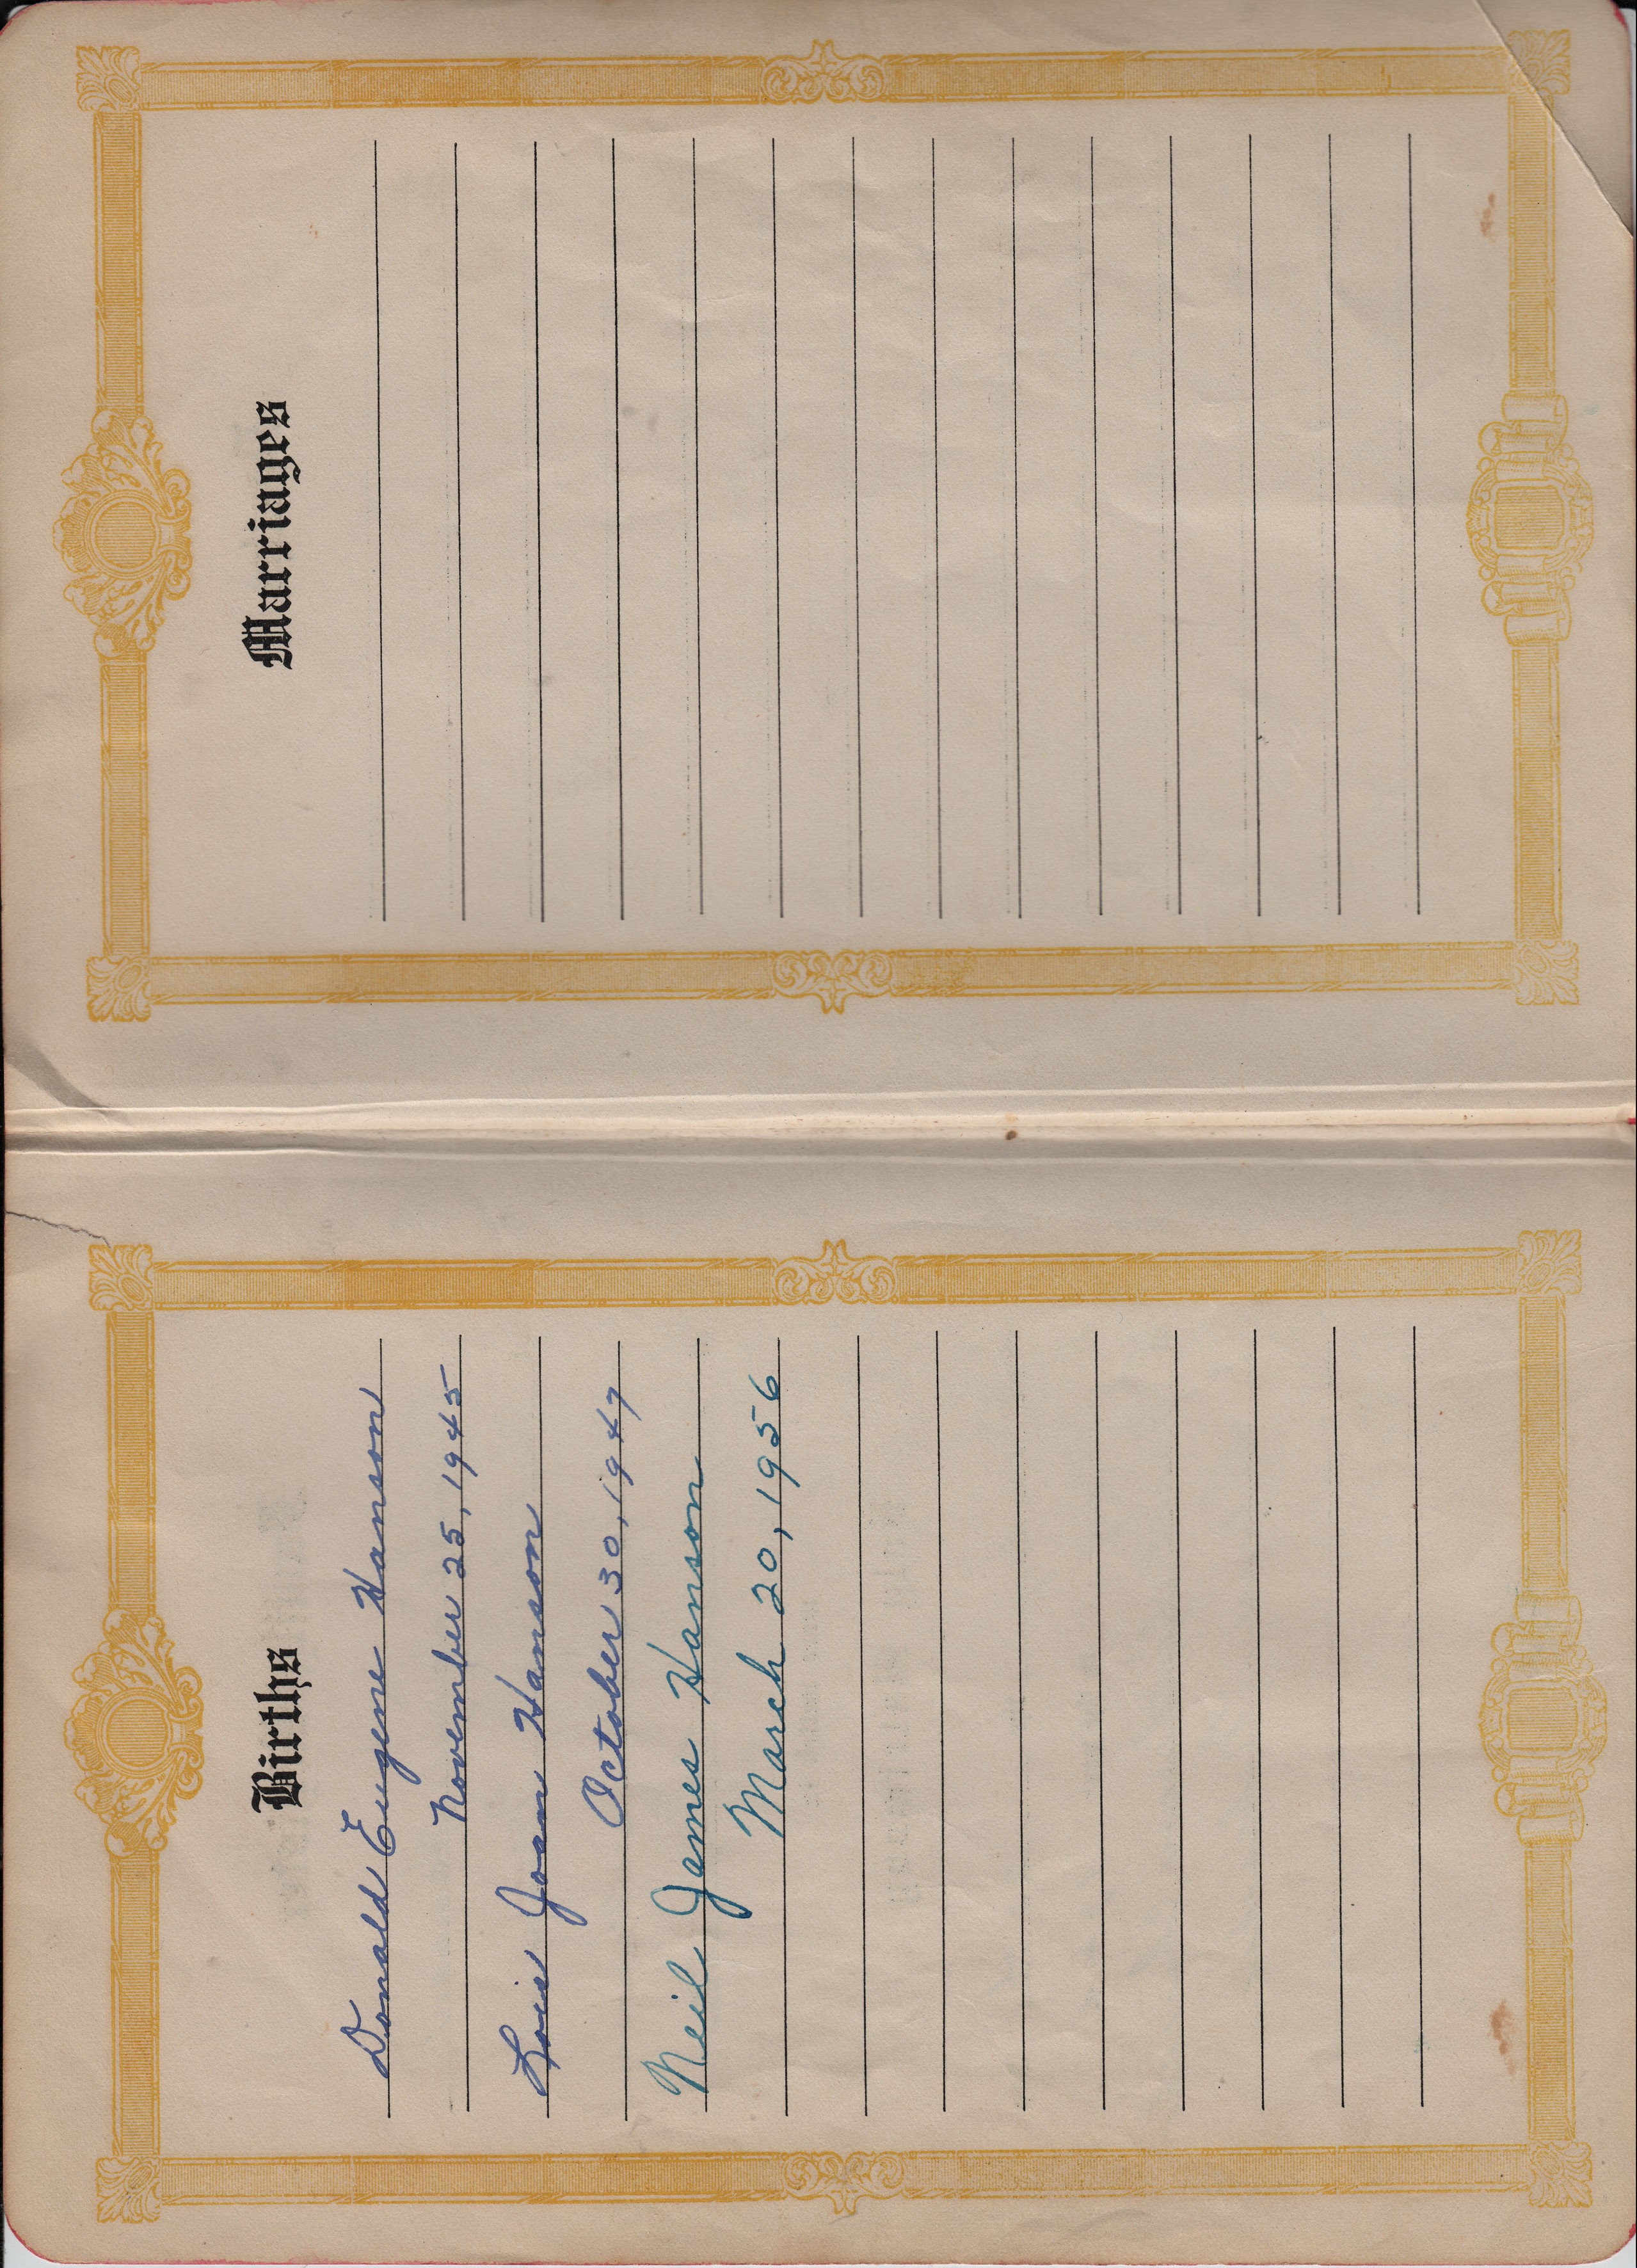 Births
Donald Eugene Hanson
November 25, 1945
Lois Joan Hanson
October 30, 1947
Neil James Hanson
March 20, 1956
Marriages